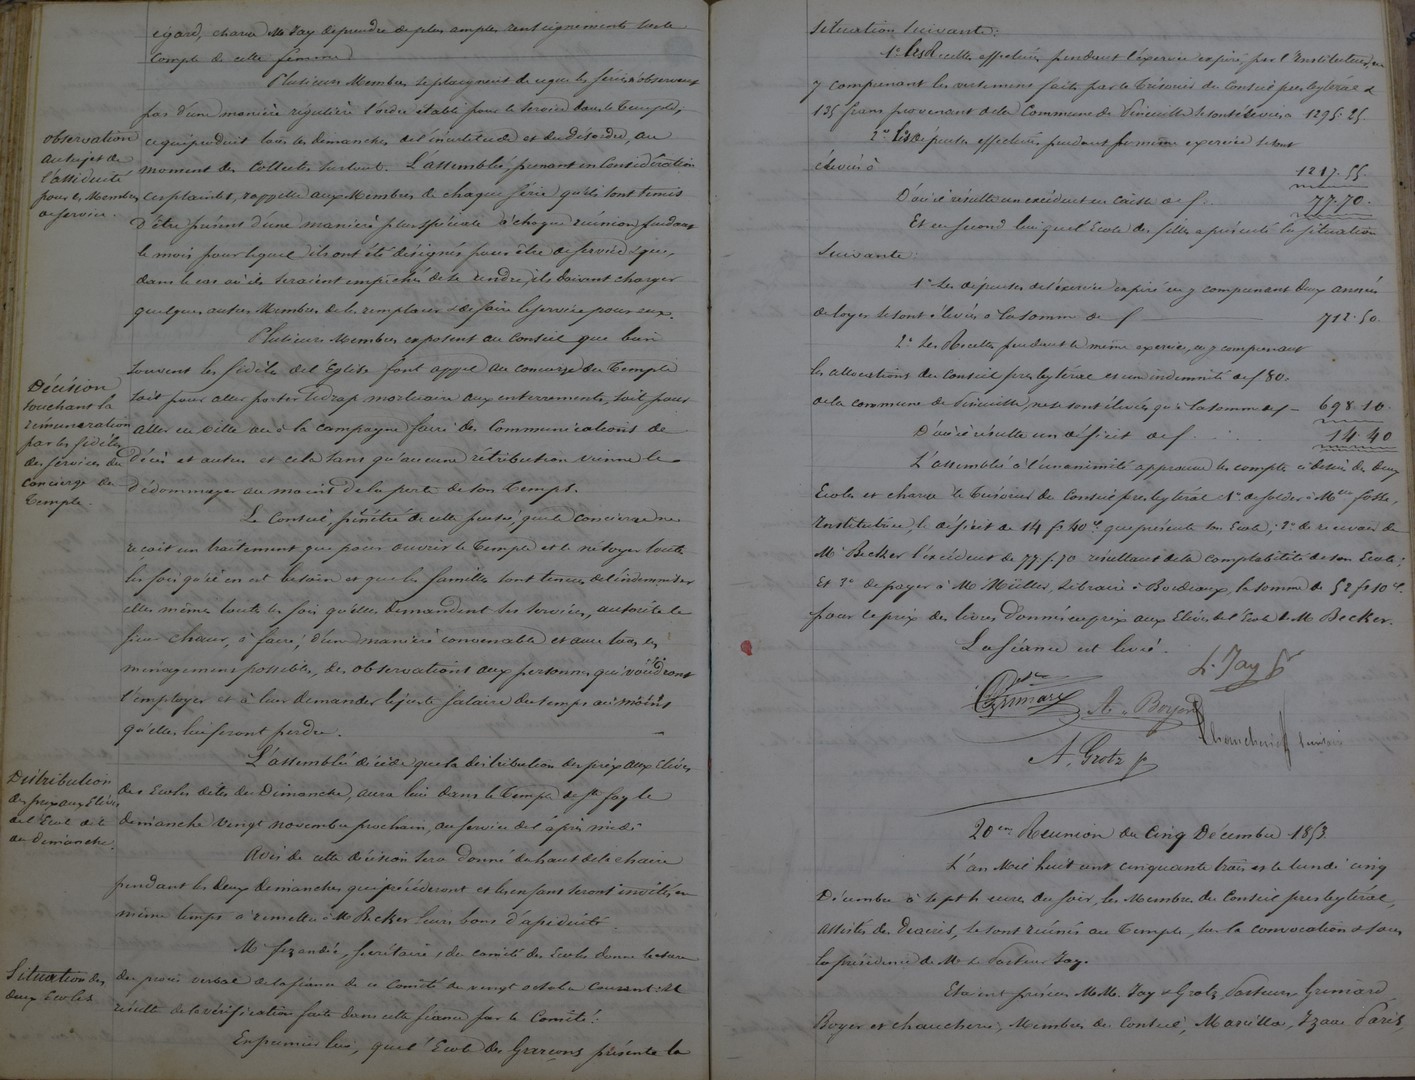 égard, charge Mr Jay de prendre de plus amples renseignements sur le
compte de cette femme.
Plusieurs Membres se plaignent de ce que les séries n'observent
pas d'une manière régulière l'ordre établi pour le service dans le Temple,
observation
au sujet de
l'assiduité
pour les Membres
de service.
ce qui produit tous les dimanches de l'incertitude et du désordre, au
moment des Collectes surtout. L'assemblée, prenant en Considération
ces plaintes, rappelle aux Membres de chaque série qu'ils sont tenus
d'être présents d'une manière plus spéciale à chaque réunion pendant
le mois pour lequel ils ont été désignés pour être de service & que,
dans le cas où ils seraient empêchés de s'y rendre, ils doivent charger
quelques autres Membres de les remplacer & de faire le service pour eux.
Plusieurs Membres exposent au Conseil que bien
Décision
touchant la
rémunération
par les fidèles
des services du
Concierge du
Temple.
souvent les fidèles de l'Eglise font appel au concierge du Temple
soit pour aller porter le drap mortuaire aux enterrements, soit pour
aller en ville ou à la campagne faire des Communications de
décès et autres et cela sans qu'aucune rétribution vienne le
dédommager au moins de la perte de son temps.
Le Conseil, pénétré de cette pensée, que le concierge ne
reçoit un traitement que pour ouvrir le Temple et le nétoyer toutes
les fois qu'il en est besoin et que les familles sont tenues de l'indemniser
elles mêmes toutes les fois qu'elles demandent ses services, autorise le
sieur à faire, d'une manière convenable et avec tous les
ménagements possibles, des observations aux personnes qui voudront
l'employer et à leur demander le juste salaire du temps au moins
qu'elles lui feront perdre.
Distribution
des prix aux Elèves
de l'Ecole dite
du Dimanche.
L'assemblée décide que la distribution des prix aux Elèves
des Ecoles dites du Dimanche, aura lieu dans le Temple de Ste foy le
dimanche vingt novembre prochain, au service de l'après midi.
Avis de cette décision sera donné du haut de la chaire
pendant les deux Dimanches qui précéderont et les enfants seront invités en
même temps à remettre à Mr Becker leurs bons d'assiduité.
Situation des
deux Ecoles
Mr secrétaire, du comité des Ecoles donne lecture
du procès verbal de la séance de ce Comité du vingt octobre Courant. Il
résulte de la vérification faite dans cette séance par le Comité:
En premier lieu, que l'Ecole des Garçons présente la
situation suivante:
1° Les Recettes effectuées pendant l'exercice expiré, par l'Instituteur, en
y comprenant les versements faits par le Trésorier du Conseil presbytéral &
135 francs provenant de la Commune de se sont élevées à 1295.25.
2° Les dépenses effectuées pendant le même exercice se sont
élevées à 1217.55.
D'où il résulte un excédent en Caisse de f. 77.70.
Et en second lieu que l'Ecole des filles a présenté la situation
suivante:
1° Les dépenses de l'exercice expiré en y comprenant deux années
de loyer se sont élevées à la somme de f 712.50.
2° Les Recettes pendant le même exercice, en y comprenant
les allocations du Conseil presbytéral et une indemnité de f 80.
de la commune de ne se sont élevées qu'à la somme de f 698.10.
D'où il résulte un déficit de f. 14.40
L'assemblée à l'unanimité approuve les comptes ci dessus des deux
Ecoles et charge le Trésorier du Conseil presbytéral 1° de solder à Mlle
Institutrice, le déficit de 14 f. 40 c. que présente son Ecole; 2° de recevoir de
Mr Becker l'excédent de 77 f. 70 résultant de la comptabilité de son Ecole;
Et 3° de payer à Mr Müller, Libraire à Bordeaux, la somme de 52 f 10 c.
pour le prix des livres donnés en prix aux Elèves de l'Ecole de Mr Becker.
La séance est levée.
L. Jay P
Grimard
A. Boyer
A. Grotz p
20eme Réunion du Cinq Décembre 1853
L'an Mil huit cent cinquante trois et le lundi cinq
Décembre à sept heures du soir, les Membres du Conseil presbytéral,
assistés des Diacres, se sont réunis au Temple, sur la convocation & sous
la présidence de Mr le Pasteur Jay.
Etaient présents M.M. Jay & Grotz Pasteurs, Grimard
Boyer et Membres du Conseil, Izaac Paris,